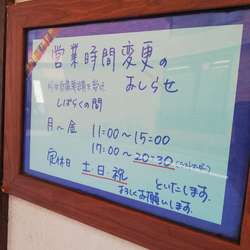 営業時間変更の
おしらせ
しばらくの間
月～金 11:00～15:00
17:00～20:30
定休日 土日・祝
といたします。
よろしくお願いします。